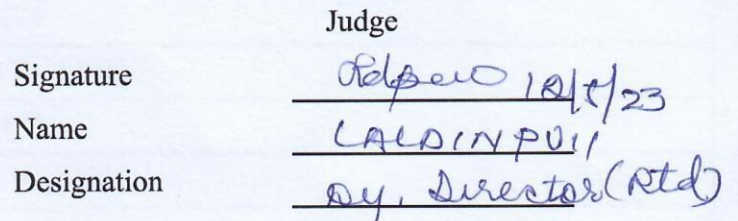 Judge
Signature 12/5/23
Name LALDINPUII
Designation Dy. Director (Rtd)